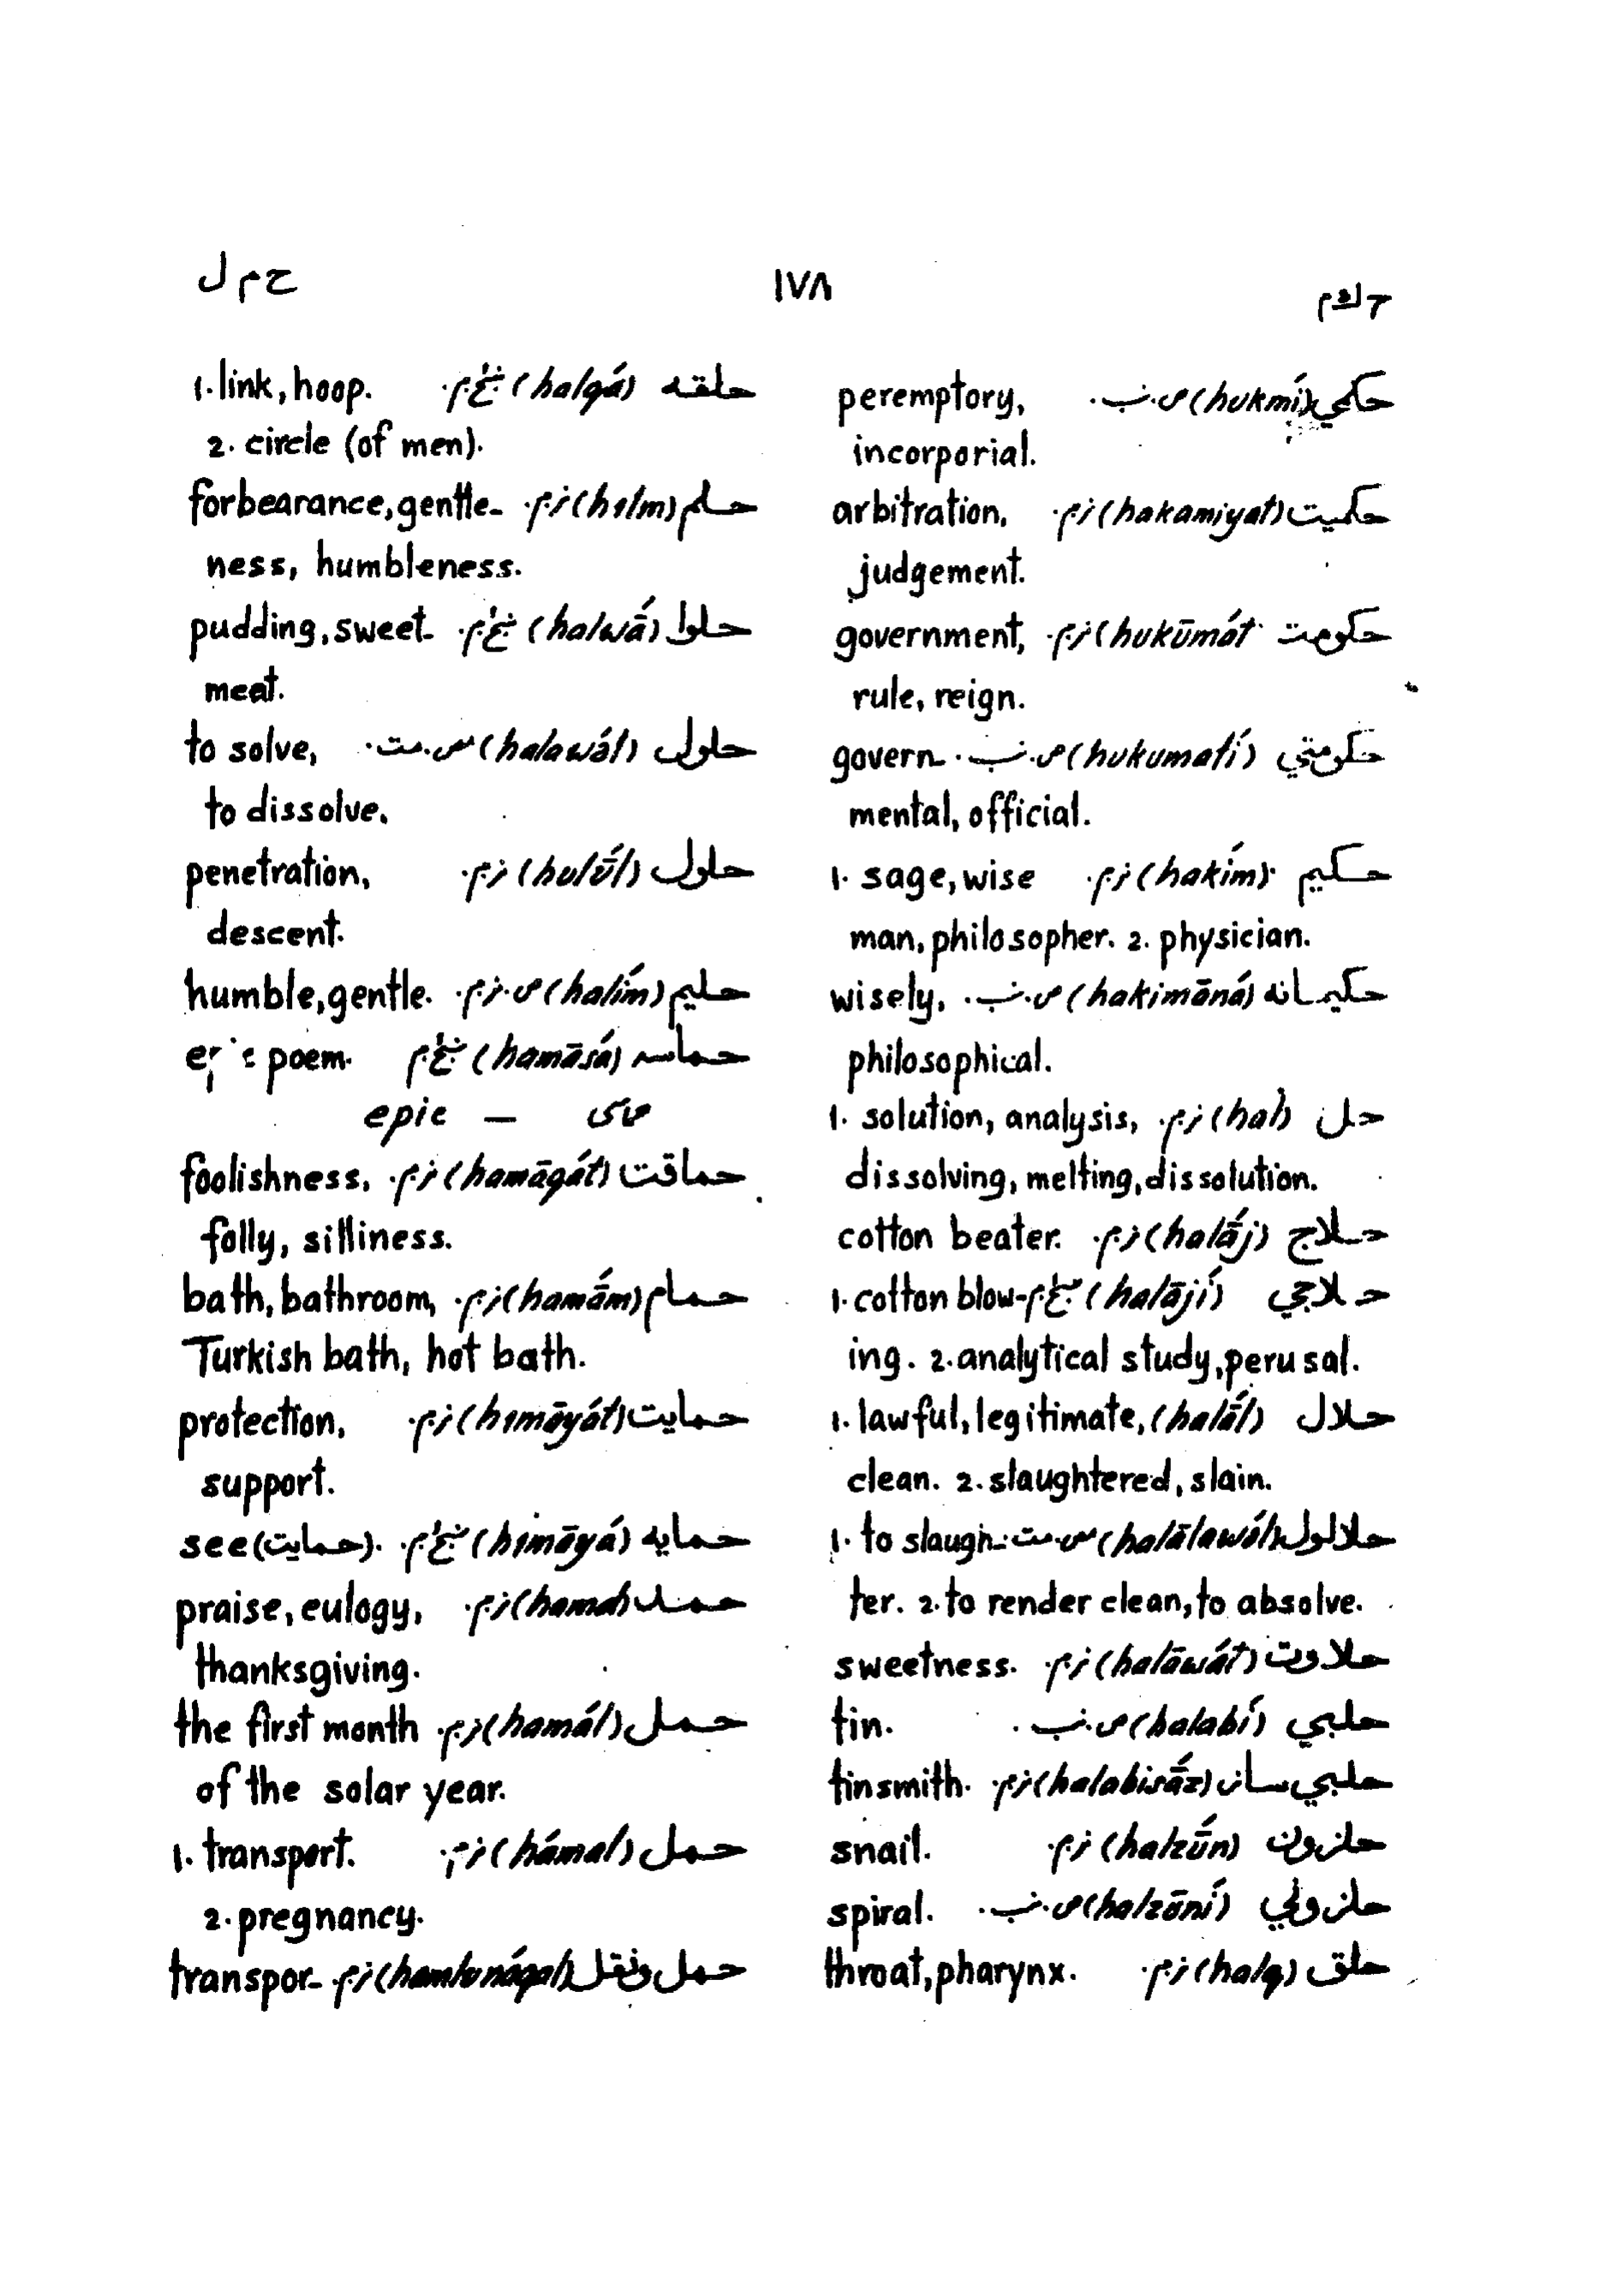 حکم ۱۷۸ حمل
حکمي (hukmí) ص.نب. peremptory,
incorporial.
حکمیت (hakamiyat) ن.م. arbitration,
judgement.
حکومت (hukūmát ن.م. government,
rule, reign.
حکومتي (hukumatí) ص.نب. govern-
mental, official.
حکیم (hakím) ن.م. 1. sage, wise
man, philosopher. 2. physician.
حکیمانه (hakimāná) ص.نب. wisely,
philosophical.
حل (hal) ن.م. 1. solution, analysis,
dissolving, melting, dissolution.
حلاج (halā́j) ن.م. cotton beater.
حلاجي (halājí) ښځ.م. 1. cotton blow-
ing. 2. analytical study, perusal.
حلال (halā́l) 1. lawful, legitimate,
clean. 2. slaughtered, slain.
حلالول (halālawə́l) مص.مت. 1. to slaugh-
ter. 2. to render clean, to absolve.
حلاوت (halāwát) ن.م. sweetness.
حلبي (halabí) ص.نب. tin.
حلبي ساز (halabisā́z) ن.م. tinsmith.
حلزون (halzū́n) ن.م. snail.
حلزوني (halzōní) ص.نب. spiral.
حلق (halq) ن.م. throat, pharynx.
حلقه (halqá) ښځ.م. 1. link, hoop.
2. circle (of men).
حلم (hılm) ن.م. forbearance, gentle-
ness, humbleness.
حلوا (halwā́) ښځ.م. pudding, sweet-
meat.
حلول (halawə́l) مص.مت. to solve,
to dissolve.
حلول (hulū́l) ن.م. penetration,
descent.
حلیم (halím) ص.ن.م. humble, gentle.
حماسه (hamāsá) ښځ.م. poem.
حماسی — epic
حماقت (hamāqát) ن.م. foolishness,
folly, silliness.
حمام (hamā́m) ن.م. bath, bathroom,
Turkish bath, hot bath.
حمایت (hımāyát) ن.م. protection,
support.
حمایه (hımāyá) ښځ.م. see (حمایت).
حمد (hamd) ن.م. praise, eulogy,
thanksgiving.
حمل (hamál) ن.م. the first month
of the solar year.
حمل (hámal) ن.م. 1. transport.
2. pregnancy.
حمل ونقل (hamlunáqal) ن.م. transpor-